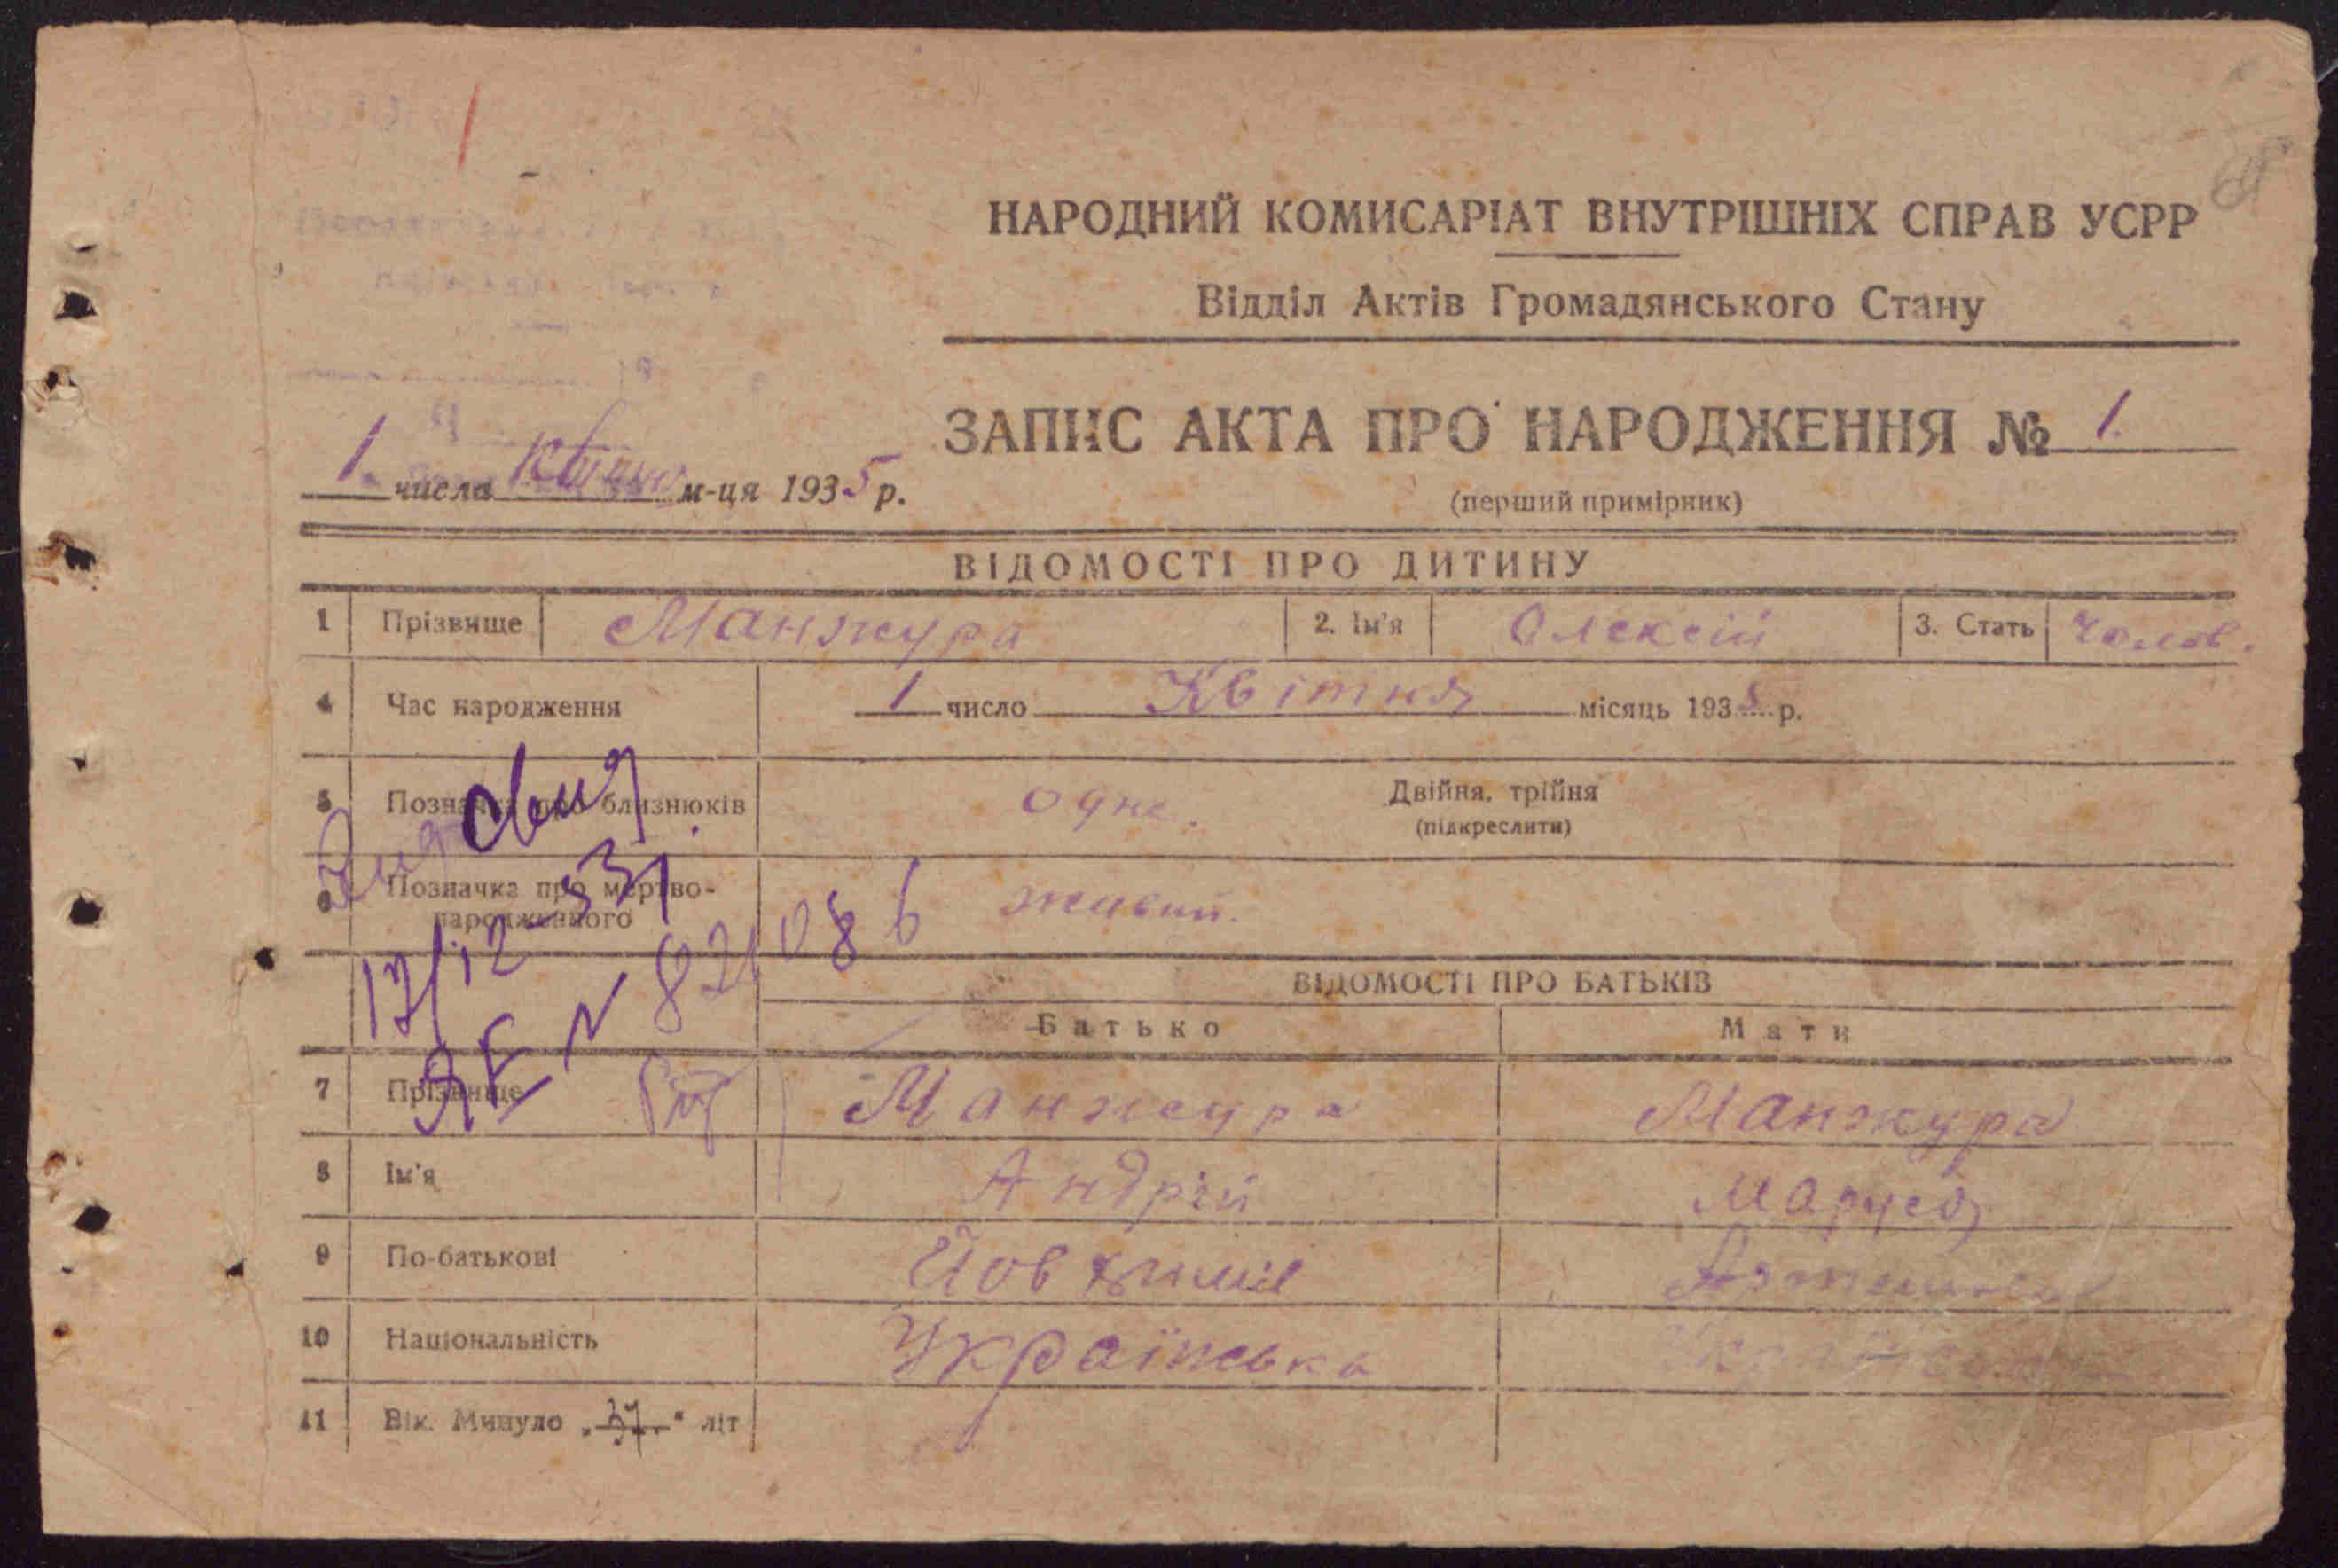 НАРОДНИЙ КОМИСАРІАТ ВНУТРІШНІХ СПРАВ УСРР
Відділ Актів Громадянського Стану
ЗАПИС АКТА ПРО НАРОДЖЕННЯ № 1.
1. числа м-ця 1935 р.
(перший примірник)
ВІДОМОСТІ ПРО ДИТИНУ
1 Прізвище Манжура 2. Ім'я Олексій 3. Стать Чолов.
4 Час народження 1 число Квітня місяць 1935 р.
5 Позначка про близнюків одне. Двійня, трійня
(підкреслити)
6 Позначка про мертво-
народженного живий.
17/12-
ЯЕ N 821086
ВІДОМОСТІ ПРО БАТЬКІВ
Батько Мати
7 Прізвище Манжура Манжура
8 Ім'я Андрій Маруся
9 По-батькові
10 Національність Українська
11 Вік. Минуло „ “ літ